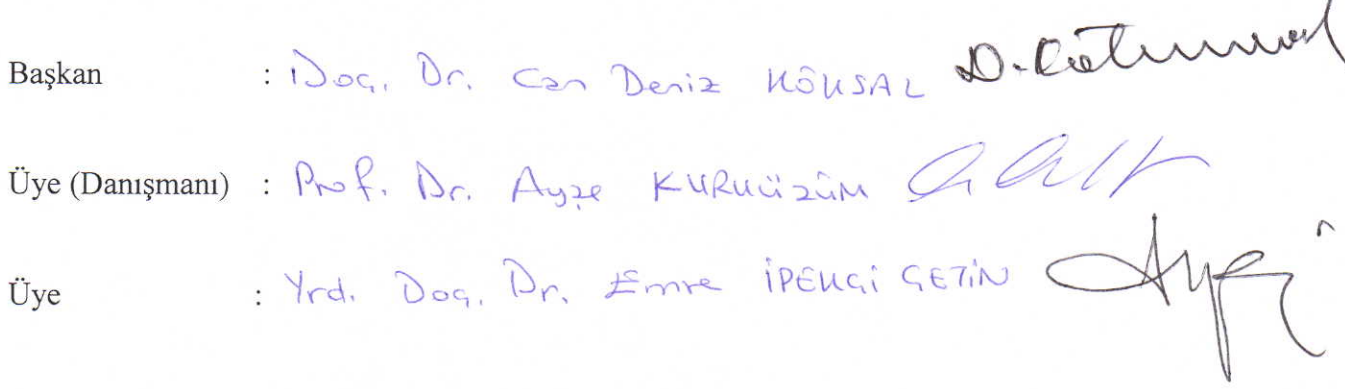 Başkan : Doç. Dr. Can Deniz KÖKSAL
Üye (Danışmanı) : Prof. Dr. Ayşe KURUÜZÜM
Üye : Yrd. Doç. Dr. Emre İPEKÇİ ÇETİN